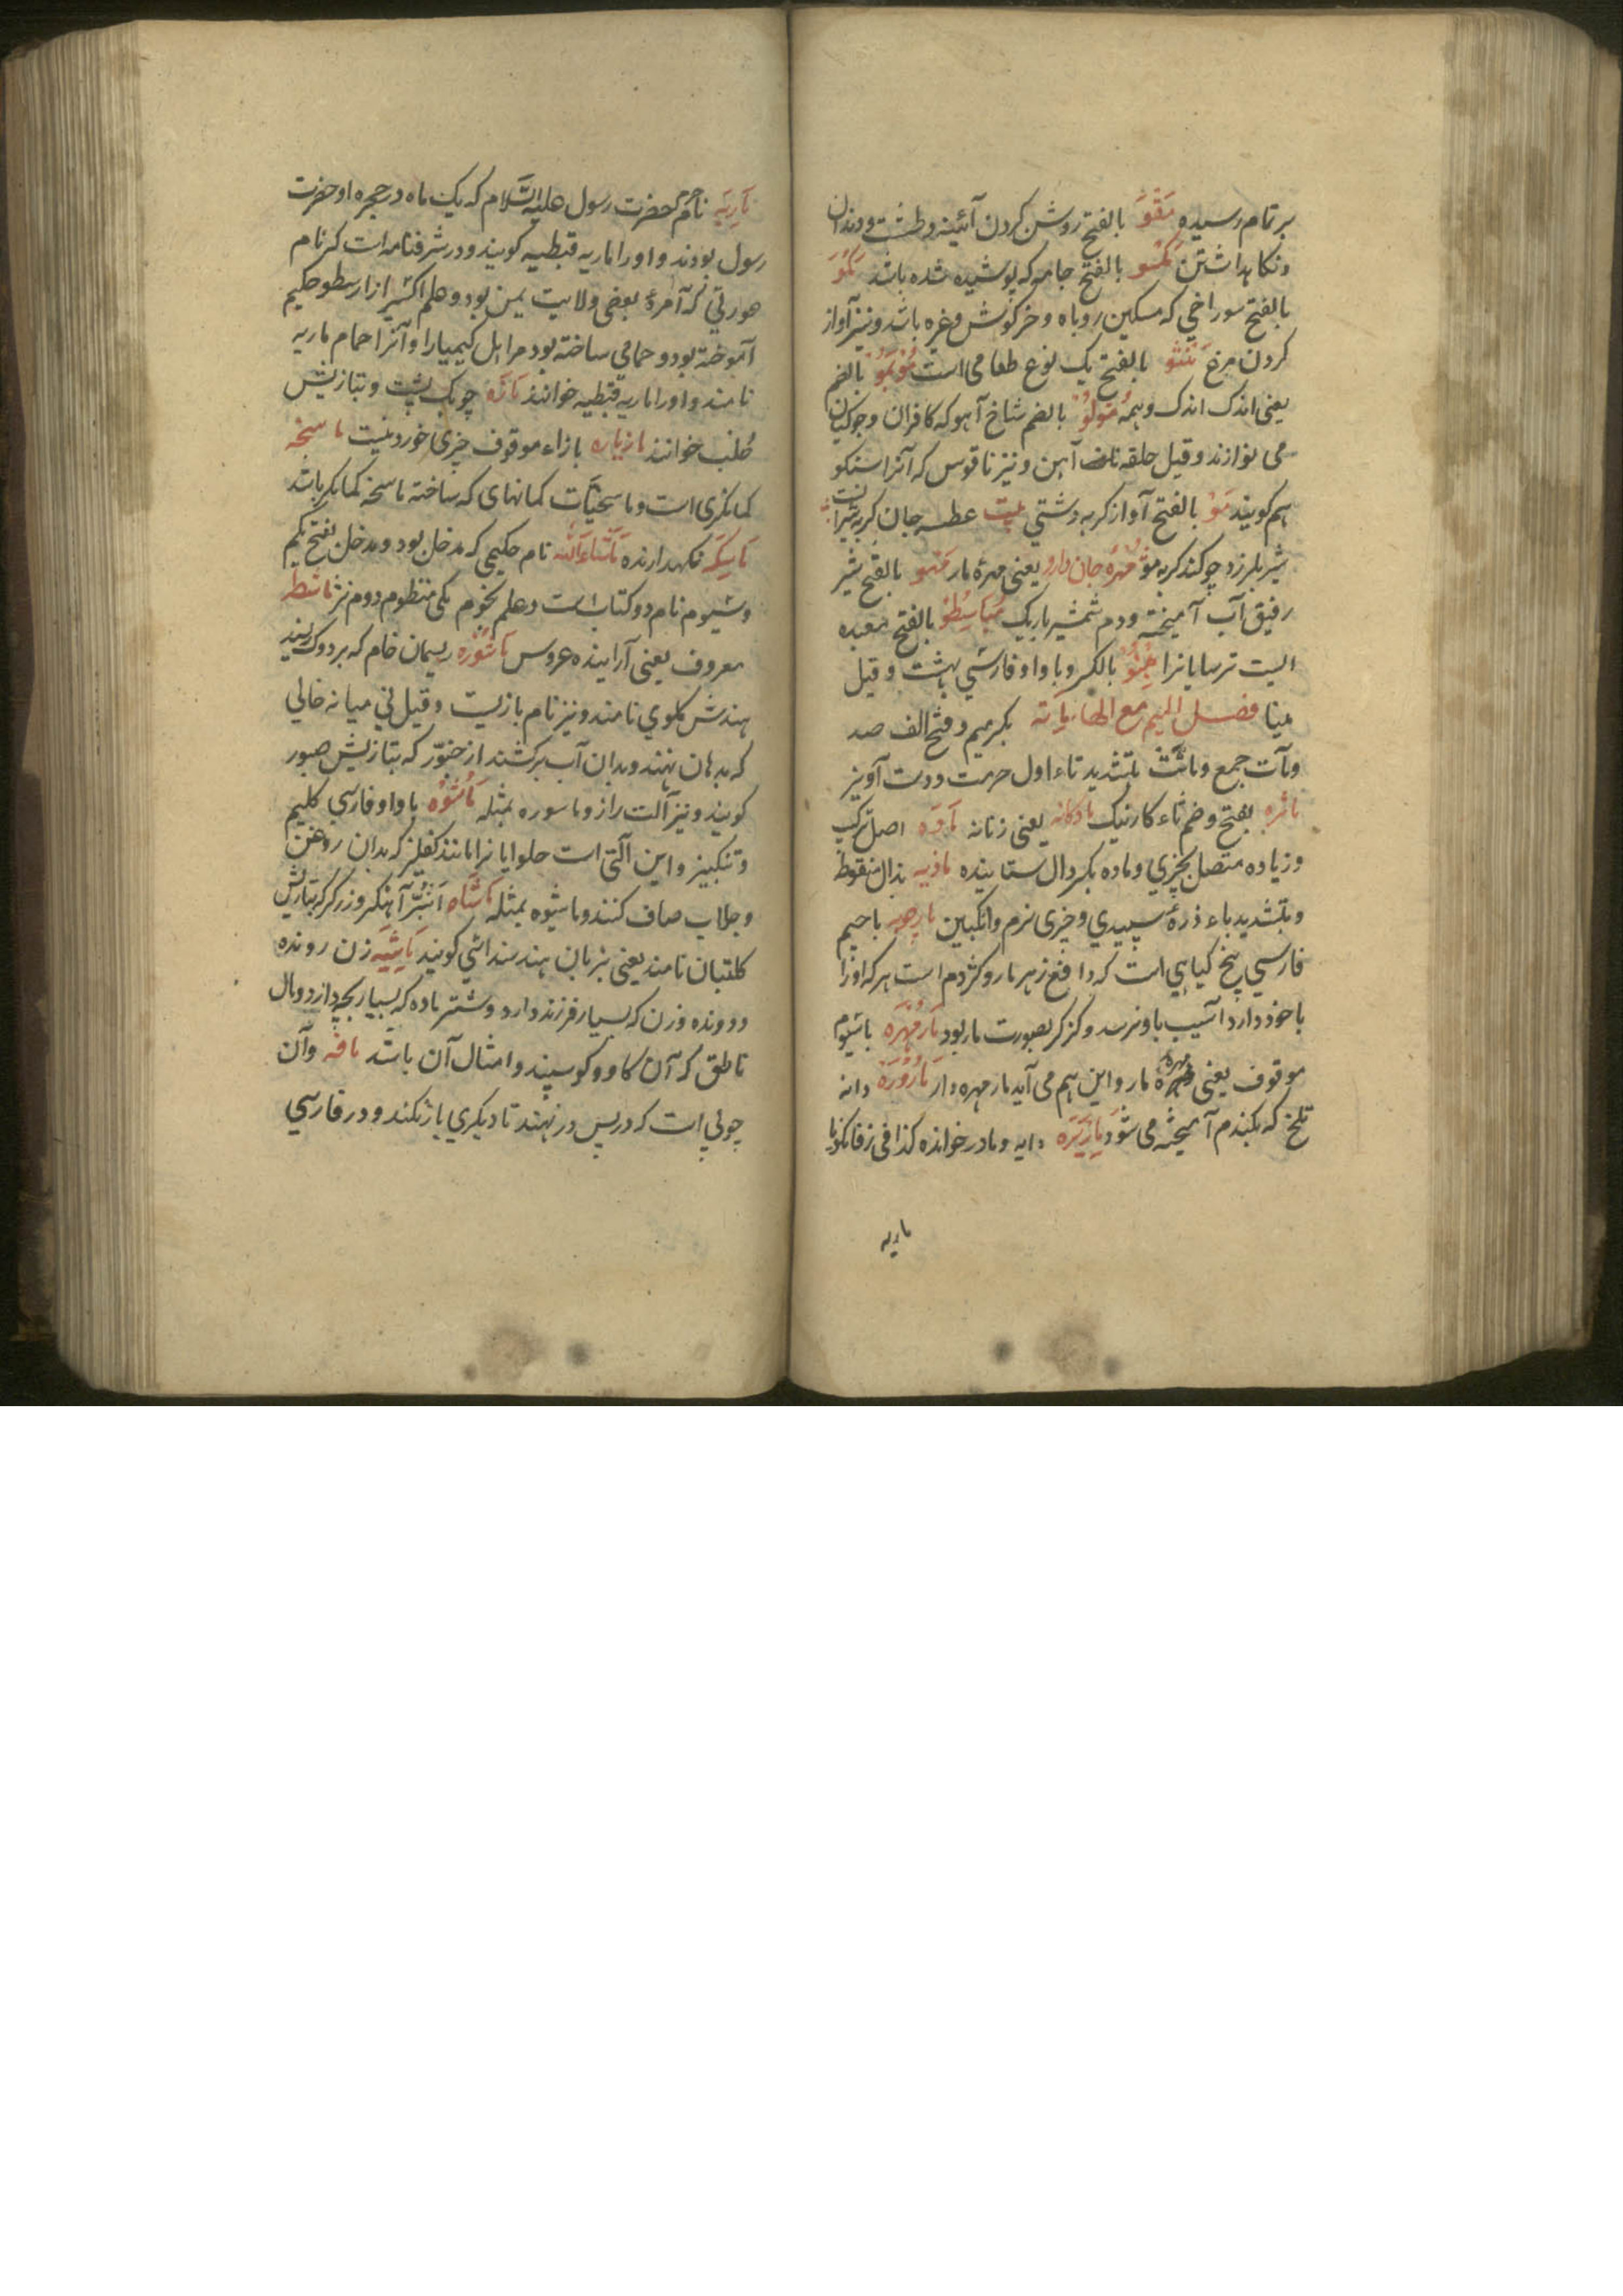 بر تمام رسیده مَقْو بالفتح روشن کردن آئینه و طشت و دندان
و نکاهداشتن مَکْسو بالفتح جامه که پوشیده شده باشد مَکْوْ
بالفتح سوراخی که مسکن روباه و خرکوش و غیره باشد و نیز آواز
کردن مرغ بالفتح یک نوع طعامی است بالضم
یعنی اندک اندک وهمه مُولُو بالضم شاخ آهو که کافران و جوکیان
می نوازند و قیل حلقه آهن و نیز ناقوس که آنرا سنکو
هم کویند مَوْ بالفتح آواز کربه دشتی بیت عطسه جان کربه
شیر بلرزد چو کند کربه مو مُهرهٔ جان دارو یعنی مهرهٔ مار مَهْو بالفتح شیر
رقیق آب آمیخته و دم شمشیر باریک بالفتح معبده
ایست ترسایانرا مِینُو بالکسر و با واو فارسی بهشت و قیل
مینا فصل المیم مع الهاء مِاَئه بکسر میم و فتح الف صد
ومآت جمع و ماتّت بتشدید تاء اول حرمت و دست آویز
ماثره بفتح و ضم ثاء کار نیک مادکانه یعنی زنانه مَادّه اصل ترکیب
و زیاده متصل بچیزی و ماده بکسر دال ستاینده ماذیه بذال منقوطه
و بتشدید یاء ذرهٔ سپیدی و چیزی نرم و انکبین مارچوبه با جیم
فارسی بیخ کیاهی است که دافع زهر مار و کژدم است هر که اورا
با خود دارد آسیب باو نرسد و کز کر بصورت مار بود مَارمُهْرَه باسیوم
موقوف یعنی مهرهٔ مار و این هم می آید مار مهره دار دانه
تلخ که بکندم آمیخته می شود مَازِیْرَه دایه و مادر خوانده کذا فی زفانکویا
ماریه
مَارِیَه نام حرم حضرت رسول علیه السّلام که یک ماه در حجره او حضرت
رسول بودند و او را ماریه قبطیه کویند و در شرفنامه است که نام
عورتی که آمرهٔ بعضی ولایت یمن بود و علم اکسیر از ارسطو حکیم
آموخته بود و حمامی ساخته بود مر اهل کیمیا را و آنرا حمام ماریه
نامند و او را ماریه قبطیه خوانند مَازَه چوبک پشت و بتازیش
صُلب خوانند مازیاره بازاء موقوف چیزی خوردنیست ماسخه
کمانکری است و ماسخیّات کمانهای که ساخته ماسخه کمانکر باشد
مَاسِکَه نکهدارنده مَاشاءَاَلله نام حکیمی که مدخل بود و مدخل بفتح یکم
و سیوم نام دو کتاب است در علم نجوم یکی منظوم دوم نثر ماشطه
معروف یعنی آراینده عروس مَاشورَه ریسمان خام که بر دوک پیچند
هندش ککوی نامند و نیز نام بازیست و قیل نی میانه خالی
که بدهان نهند و بدان آب برکشند از خنوّر که بتازیش صبور
کویند و نیز آلت راز و ماسوره بمثله مَاشُوه با واو فارسی کلیم
و تنکبیز و این آلتی است حلوایانرا مانند کفلیز که بدان روغن
و جلاب صاف کنند و ماشیوه بمثله مَاشَاه اَنبُر آهنکر و زرکر که بتازیش
کلبتان نامند یعنی بزبان هند سنداشی کویند مَاشِیَه زن رونده
و دونده و زن که بسیار فرزند دارد و شتر ماده که بسیار بچه دارد و مال
ناطق که آن کاو و کوسپند و امثال آن باشد مافه و آن
چوبی است که در پس در نهند تا دیکری باز نکند و در فارسی